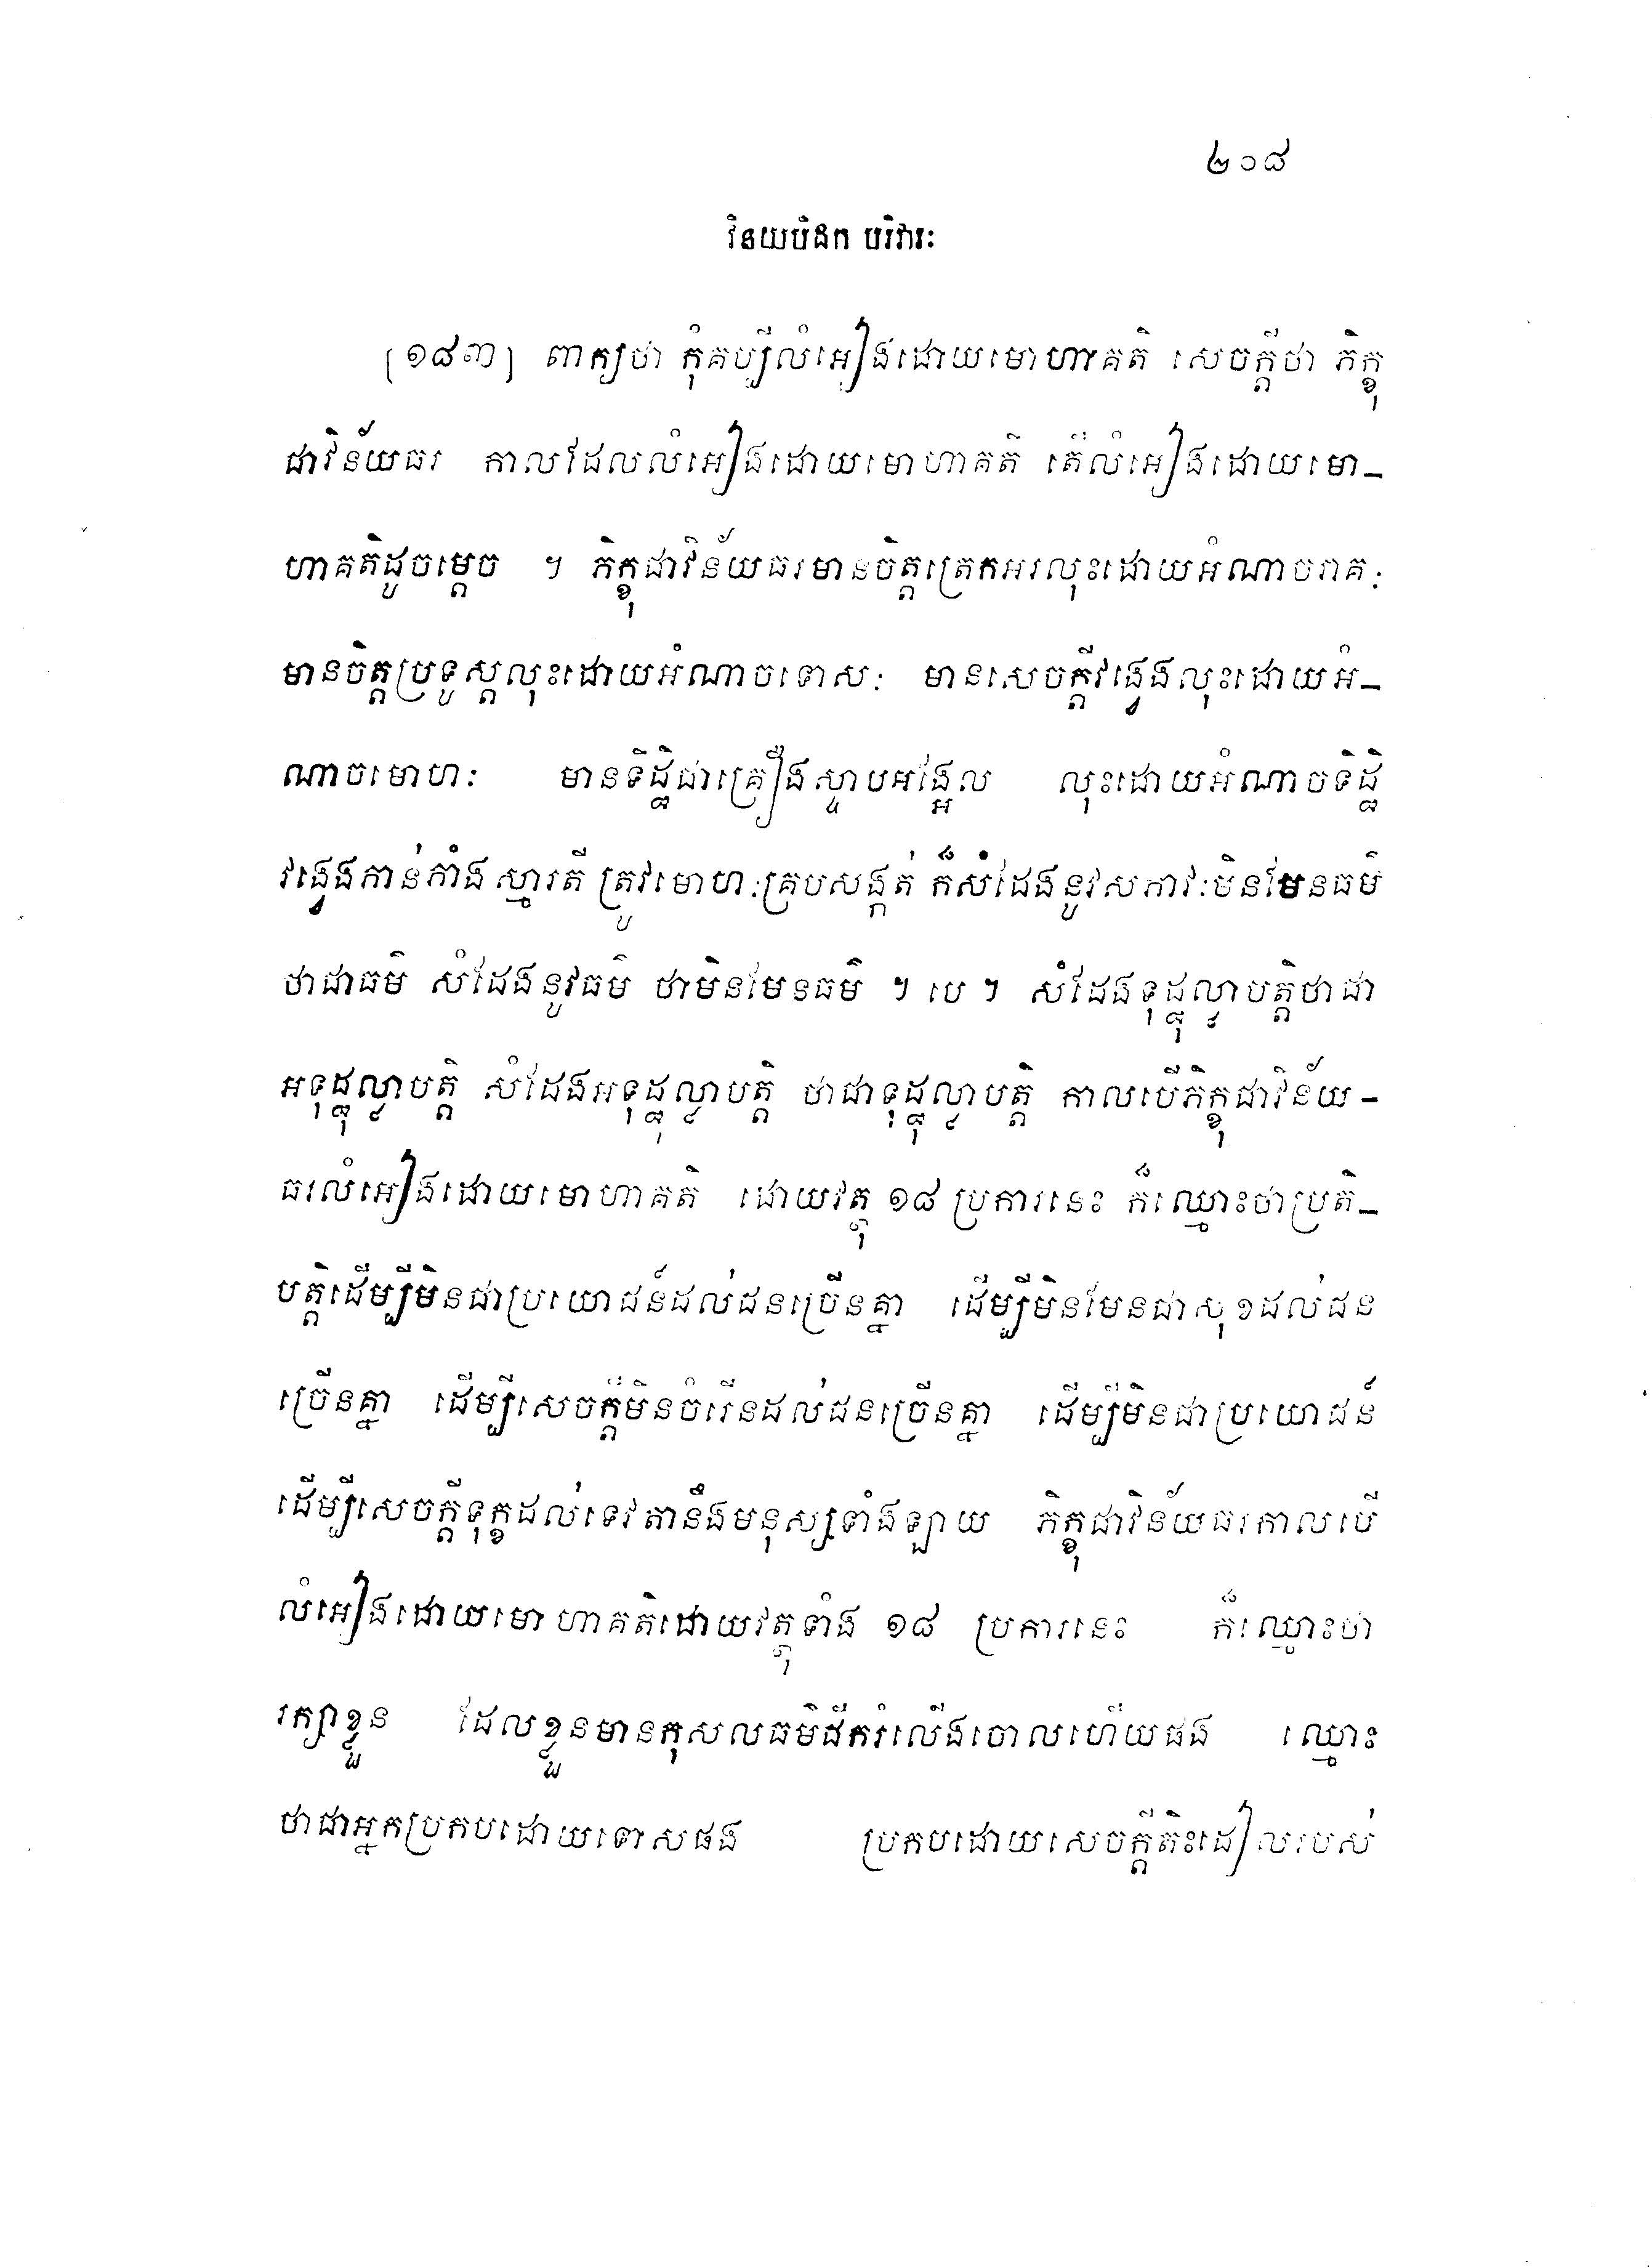 ២១៨
វិនយបិដក បរិវារៈ
[១៨៣] ពាក្យថា កុំគប្បីលំអៀងដោយមោហាគតិ សេចក្តីថា ភិក្ខុ
ជាវិន័យធរ កាលដែលលំអៀងដោយមោហាគតិ តើលំអៀងដោយមោ-
ហាគតិដូចម្តេច ។ ភិក្ខុជាវិន័យធរមានចិត្តត្រេកអរលុះដោយអំណាចរាគៈ
មានចិត្តប្រទូស្តលុះដោយអំណាចទោសៈ មានសេចក្តីវង្វេងលុះដោយអំ-
ណាចមោហៈ មានទិដ្ឋិជាគ្រឿងស្ទាបអង្អែល លុះដោយអំណាចទិដ្ឋិ
វង្វេងកាន់កាំងស្មារតី ត្រូវមោហៈគ្របសង្កត់ ក៏សំដែងនូវសភាវៈមិនមែនធម៌
ថាជាធម៌ សំដែងនូវធម៌ ថាមិនមែនធម៌ ។ បេ ។ សំដែងទុដ្ឋុល្លាបត្តិថាជា
អទុដ្ឋុល្លាបត្តិ សំដែងអទុដ្ឋុល្លាបត្តិ ថាជាទុដ្ឋុល្លាបត្តិ កាលបើភិក្ខុជាវិន័យ-
ធរលំអៀងដោយមោហាគតិ ដោយវត្ថុ ១៨ ប្រការនេះ ក៏ឈ្មោះថាប្រតិ-
បត្តិដើម្បីមិនជាប្រយោជន៍ដល់ជនច្រើនគ្នា ដើម្បីមិនមែនជាសុខដល់ជន
ច្រើនគ្នា ដើម្បីសេចក្តីមិនចំរើនដល់ជនច្រើនគ្នា ដើម្បីមិនជាប្រយោជន៍
ដើម្បីសេចក្តីទុក្ខដល់ទេវតានឹងមនុស្សទាំងឡាយ ភិក្ខុជាវិន័យធរកាលបើ
លំអៀងដោយមោហាគតិដោយវត្ថុទាំង ១៨ ប្រការនេះ ក៏ឈ្មោះថា
រក្សាខ្លួន ដែលខ្លួនមានកុសលធម៌ជីករំលើងចោលហើយផង ឈ្មោះ
ថាជាអ្នកប្រកបដោយទោសផង ប្រកបដោយសេចក្តីតិះដៀលរបស់